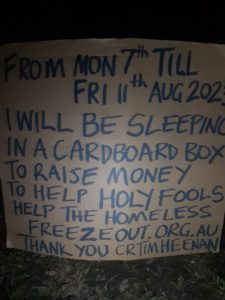 FROM MON 7th TILL
FRI 11th AUG 202
I WILL BE SLEEPING
IN A CARDBOARD BOX
TO RAISE MONEY
TO HELP HOLY FOOLS
HELP THE HOMELESS
FREEZEOUT.ORG.AU
THANK YOU CR TIM HEENAN